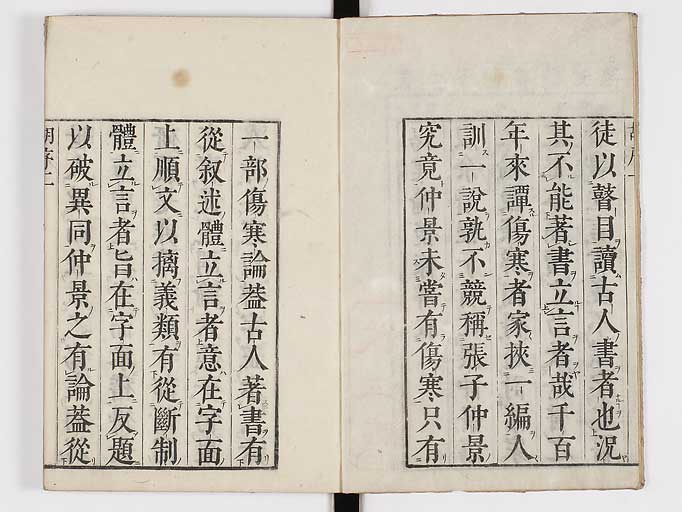 徒以瞽目讀古人書者也況
其不能著書立言者哉千百
年來譚傷寒者家挾一編人
訓一說孰不競稱張子仲景
究竟仲景未嘗有傷寒只有
一部傷寒論葢古人著書有
從叙述體立言者意在字面
上順文以摛義類有從斷制
體立言者旨在字面上反題
以破異同仲景之有論葢從